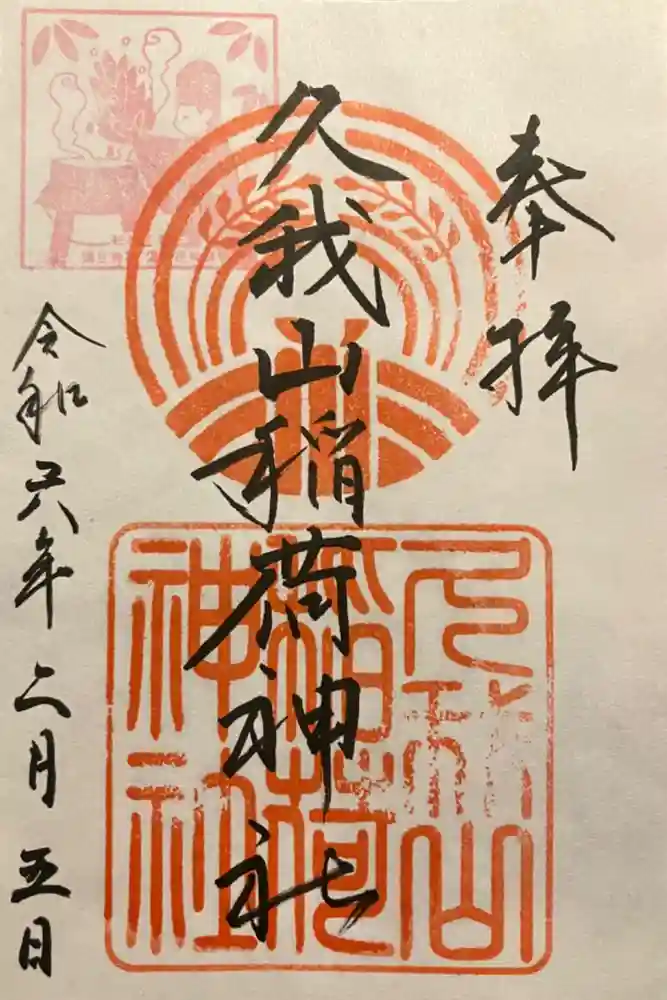 奉拝
久我山稲荷神社
久我山
稲荷
神社
令和六年二月五日